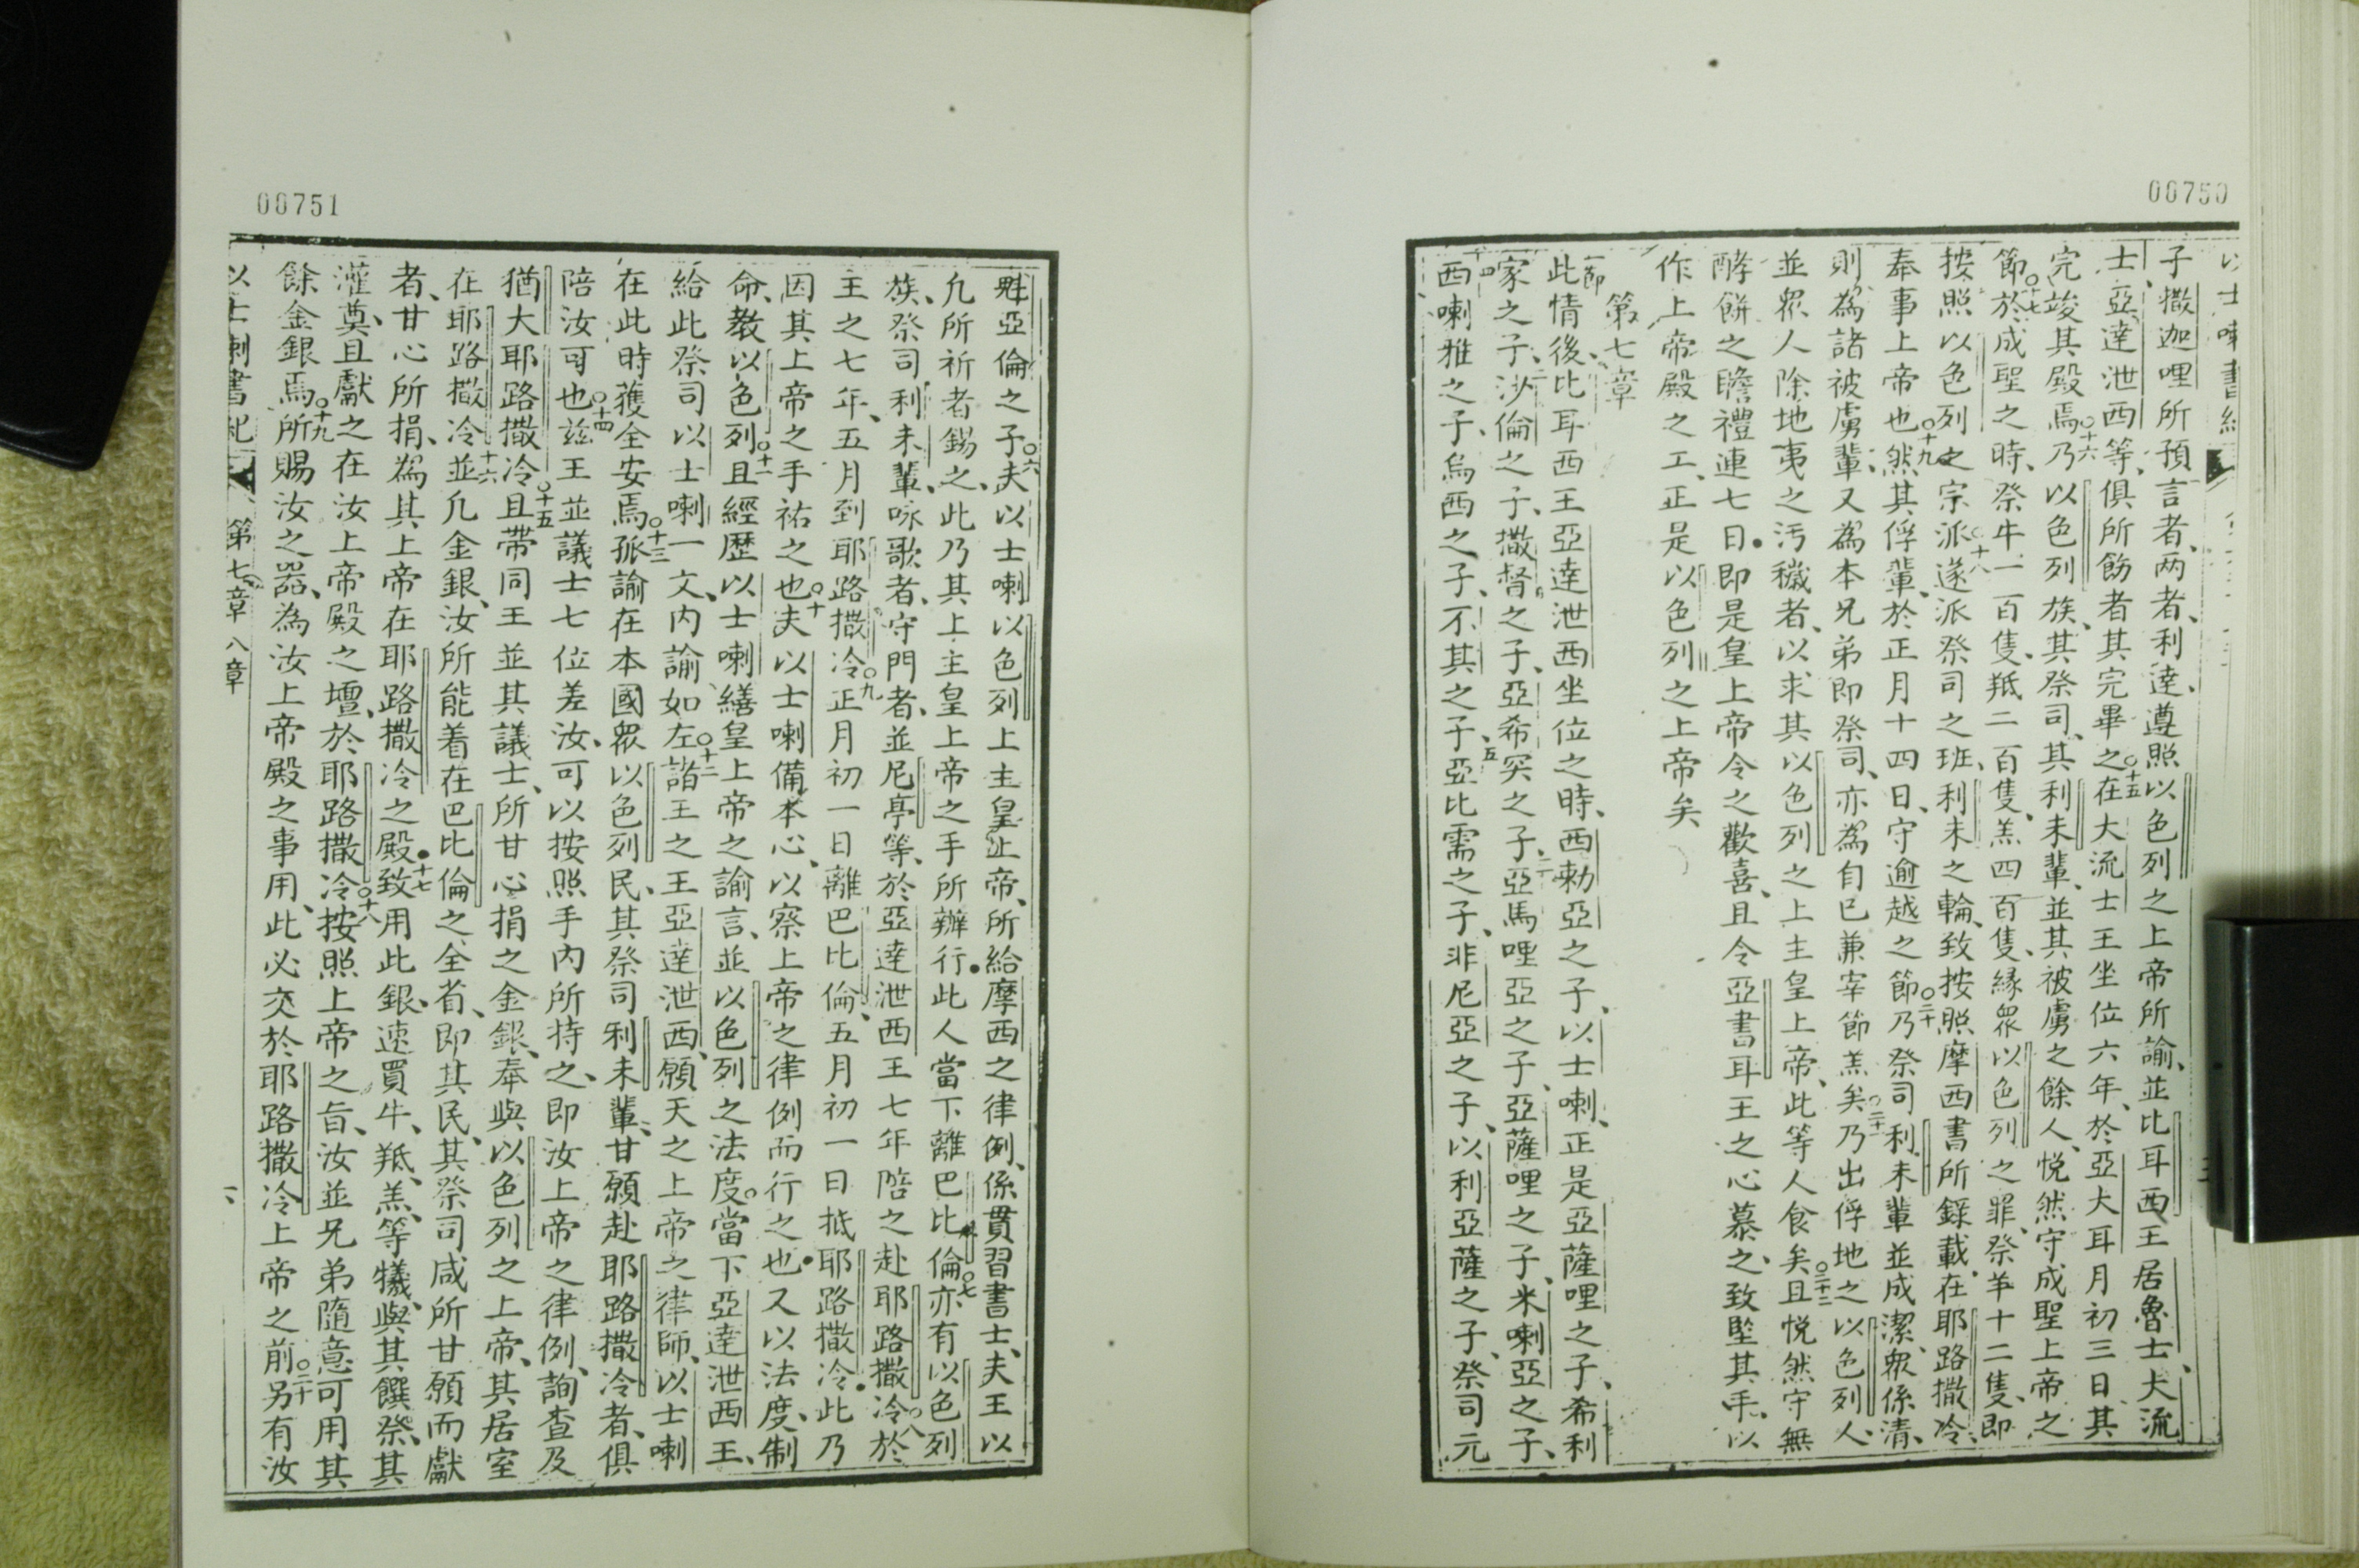 00750
子撒迦哩所預言者、两者、利達、遵照以色列之上帝所諭、並比耳西王居魯士、大流
士、亞達泄西等、俱所飭者其完畢之○十五在大流士王坐位六年、於亞大耳月初三日其
完竣其殿焉○十六乃以色列族、其祭司、其利未輩、並其被虜之餘人、悅然守成聖上帝之
節○十七於成聖之時、祭牛一百隻、羝二百隻、羔四百隻、緣眾以色列之罪、祭羊十二隻、即
按照以色列之宗派○十八遂派祭司之班、利未之輪、致按照摩西書所錄載、在耶路撒冷、
奉事上帝也○十九然其俘輩、於正月十四日、守逾越之節○二十乃祭司利未輩並成潔、眾係清、
則為諸被虜輩、又為本兄弟即祭司、亦為自己兼宰節羔矣○二十一乃出俘地之以色列人、
並眾人除地夷之污穢者、以求其以色列之上主皇上帝、此等人食矣○二十二且悅然守無
酵餅之瞻禮連七日●即是皇上帝令之歡喜、且令亞書耳王之心慕之、致堅其手、以
作上帝殿之工、正是以色列之上帝矣
第七章
一節此情後、比耳西王亞達泄西坐位之時、西勑亞之子、以士喇、正是亞薩哩之子、希利
家之子、二沙倫之子、撒督之子、亞希突之子、三亞馬哩亞之子、亞薩哩之子、米喇亞之子、
四西喇雅之子、烏西之子、不其之子、五亞比需之子、非尼亞之子、以利亞薩之子、祭司元
00751
魁亞倫之子○六夫以士喇以色列上主皇上帝、所給摩西之律例、係貫習書士、夫王以
凢所祈者錫之、此乃其上主皇上帝之手所辦行●此人當下離巴比倫○七亦有以色列
族、祭司利未輩、咏歌者、守門者、並尼亭等、於亞達泄西王七年陪之赴耶路撒冷○八於
主之七年、五月到耶路撒冷○九正月初一日離巴比倫、五月初一日抵耶路撒冷●此乃
因其上帝之手祐之也○十夫以士喇備本心、以察上帝之律例而行之也●又以法度、制
命、教以色列○十一且經歷以士喇繕皇上帝之諭言、並以色列之法度○當下亞達泄西王、
給此祭司以士喇一文、内諭如左○十二諸王之王亞達泄西、願天之上帝之律師、以士喇
在此時獲全安焉○十三孤諭在本國眾以色列民、其祭司利未輩、甘願赴耶路撒冷者、俱
陪汝可也○十四茲王並議士七位差汝、可以按照手内所持之、即汝上帝之律例、詢查及
猶大耶路撒冷○十五且帶同王並其議士、所甘心捐之金銀、奉與以色列之上帝、其居室
在耶路撒冷○十六並凢金銀、汝所能着在巴比倫之全省、即其民、其祭司咸所甘願而獻
者、甘心所捐、為其上帝在耶路撒冷之殿●十七致用此銀、速買牛、羝、羔、等犧、與其饌祭、其
灌奠、且獻之在汝上帝殿之壇、於耶路撒冷○十八按照上帝之旨、汝並兄弟隨意可用其
餘金銀焉○十九所賜汝之器、為汝上帝殿之事用、此必交於耶路撒冷上帝之前○二十另有汝
以士喇書紀 第七章 八章